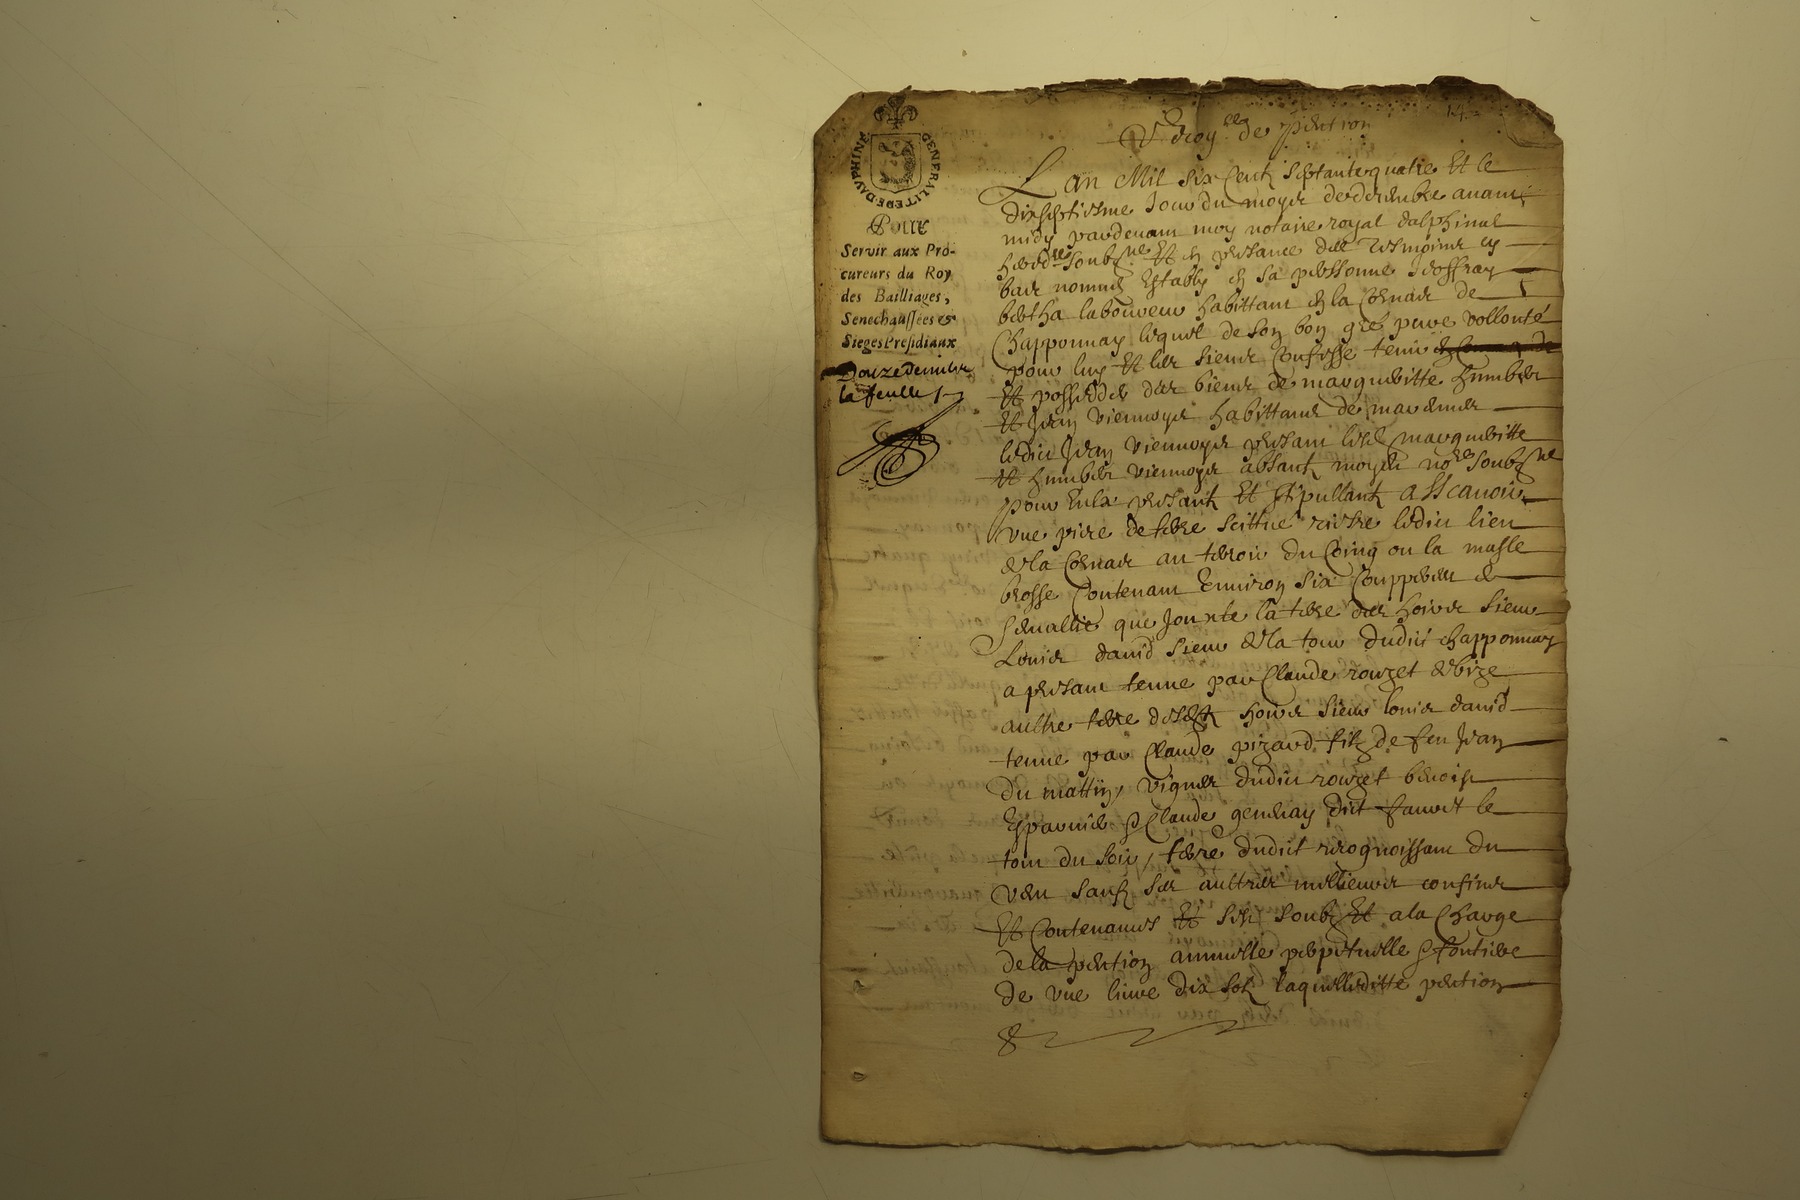 GENERALITE DE DAUPHINE
Pour
Servir aux Pro-
cureurs du Roy
des Bailliages,
Senechaussées et
Sieges Presidiaux
Douze deniers
la feuille
14
de pention
L an Mil six Cent septante quatre Et le
dixseptiesme Jour du moys de decembre avant
midy pardevant moy notaire royal dalphinal
heredre soubzne Et en presance des tesmoins cy
bas nommés Estably en sa personne Jeoffray
bertha laboureur habittant en la Cornaz de
Chapponnay lequel de son bon gré pure vollonté
pour luy Et les siens Confesse tenir
Et posseder des biens de margueritte humbert
Et Jean viennoys habittans de marennes
ledict Jean viennoys presant lesd margueritte
Et humbert viennoys absantz moydt nore soubzne
pour Eulx presant Et stipullant a Scavoir
vne piece de terre scittué riere ledict lieu
de la Cornaz au terroir du Coing ou la masle
brosse Contenant Environ six Coupperees de
semallie que Jouxte la terre des hoirs sieur
Louis david sieur de la tour dudict chapponnay
a presant tenue par Claude rouzet de bize
aultre terre desdtz hoirs sieur louis david
tenue par Claude pizard filz de feu Jean
du mattin, vignes dudict rouzet benoist
Esparnié & Claude gendray dict fauvet le
tour du soir, terre dudict recognoissant du
vent sauf ses aultres meilleurs confins
Et Contenances Et sest soubz Et a la Charge
de la pention annuelle perpetuelle & fontiere
de vne livre dix solz laquelleditte pention